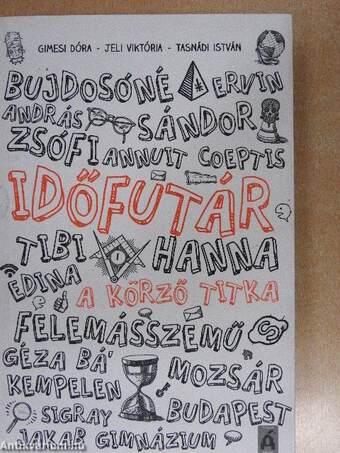 GIMESI DÓRA - JELI VIKTÓRIA - TASNÁDI ISTVÁN
BUJDOSÓNÉ ERVIN
ANDRÁS SÁNDOR
ZSÓFI ANNUIT COEPTIS
IDŐFUTÁR
TIBI HANNA
EDINA
A KÖRZŐ TITKA
FELEMÁSSZEMŰ
GÉZA BÁ' MOZSÁR
KEMPELEN
SIGRAY BUDAPEST
JAKAB GIMNÁZIUM
Á
antikvarium.hu